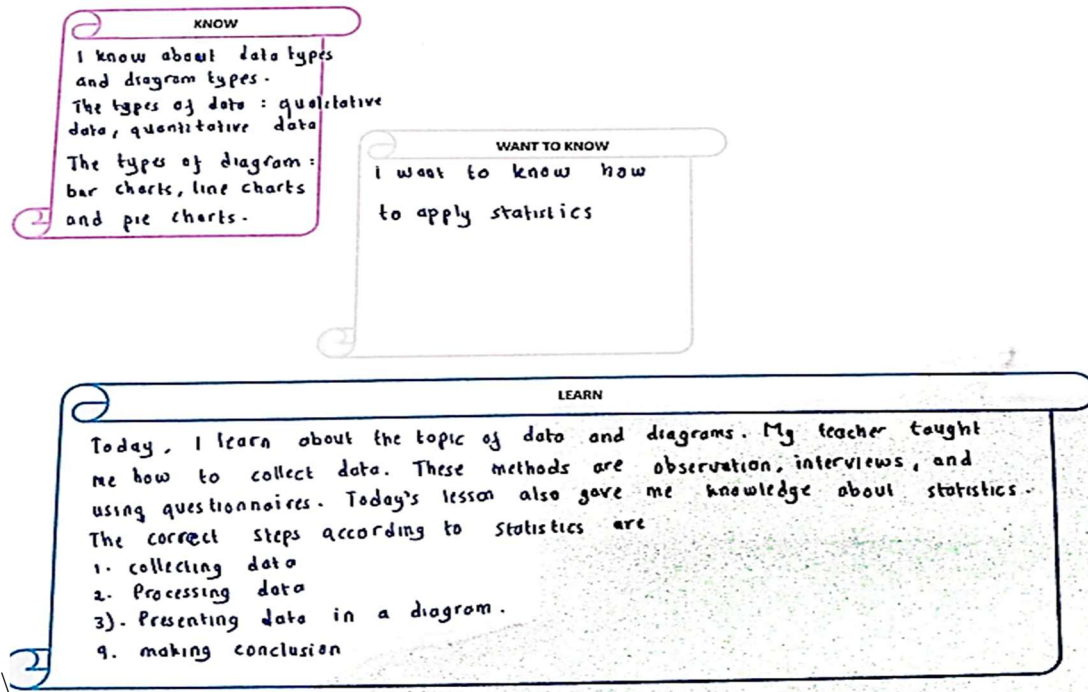 KNOW
I know about data types
and diagram types.
The types of data : qualitative
data, quantitative data
The types of diagram :
bar charts, line charts
and pie charts.
WANT TO KNOW
I want to know how
to apply statistics
LEARN
Today, I learn about the topic of data and diagrams. My teacher taught
me how to collect data. These methods are observation, interviews, and
using questionnaires. Today's lesson also gave me knowledge about statistics.
The correct steps according to statistics are
1. collecting data
2. Processing data
3). Presenting data in a diagram.
4. making conclusion
\